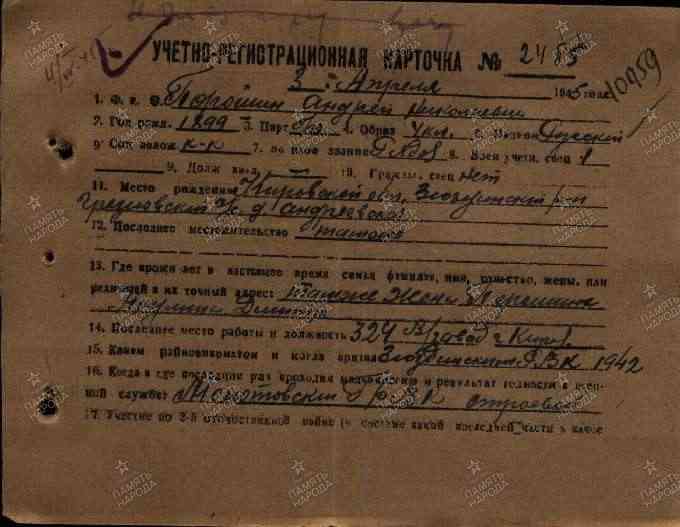 УЧЕТНО-РЕГИСТРАЦИОННАЯ КАРТОЧКА № 2453
10959
3 " Апреля 1945 года
1. Ф. и. О. Порошин Андрей Николаевич
2. Год рожд. 1899 3. Парт. 4. Образ 4 кл. 5. Национ Русский
6 Соц полож к-к 7. во звание Рядов 8. Воен учетн. спец 1
9. Долж 10. Граждан. спец нет
11. Место рождения Кировской обл, Зюздинский р-н
с/с д. Андреевская
12. Последнее местожительство
13. Где проживает в настоящее время семья фамилия, имя, отчество, жены, или
родителей и их точный адрес: Жена Порошина
14. Последнее место работы и должность 324 завод г. Киров
15. Каким райвоенкоматом и когда призван Зюздинским РВК 1942
16. Когда и где последний раз проходил медкомиссию и результат годности к воен-
ной службе: Молотовский РВК строевой
17. Участие во 2-й отечественной войне (в составе какой последней части в какое
ПАМЯТЬ НАРОДА